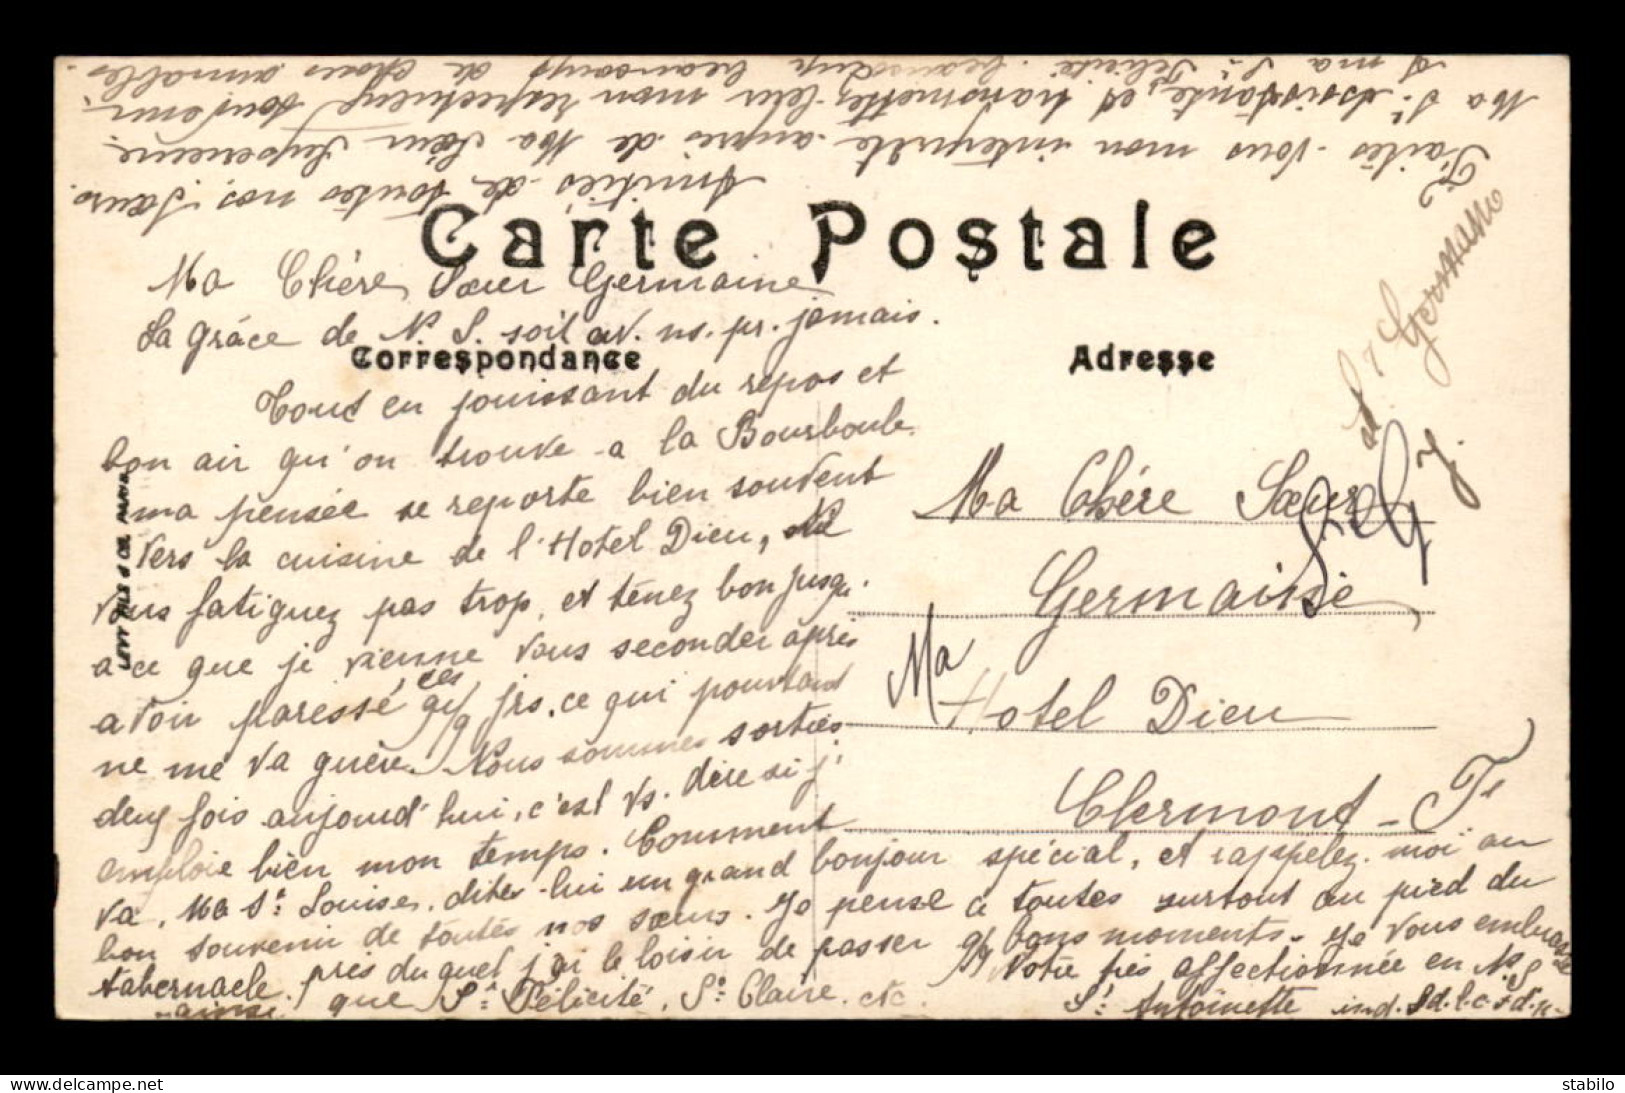 Carte Postale
Correspondance
Adresse
Ma Chère Sœur Germaine
La grâce de N. S. soit av. ns. pr. jamais.
Tout en jouissant du repos et
bon air qu'on trouve a la Bourboule
ma pensée se reporte bien souvent
vers la cuisine de l'Hotel Dieu, Ne
vous fatiguez pas trop, et tenez bon jusqu'
a ce que je vienne vous seconder après
avoir paressé ces qq jrs, ce qui pourtant
ne me va guère. Nous sommes sorties
deux fois aujourd'hui, c'est vs. dire si j'
emploie bien mon temps. Comment
va, Ma Sr Louise, dites-lui un grand bonjour spécial, et rappelez-moi au
bon souvenir de toutes nos sœurs. Je pense a toutes surtout au pied du
tabernacle, près duquel j'ai le loisir de passer qq bons moments. Je vous embrasse
ainsi que Sr Félicité, Sr Claire. etc.
Votre très affectionnée en N. S
Sr Antoinette ind. S d. l. c. s d. p.
Amitiés de toutes nos sœurs.
Faites-vous mon interprete aupres de Ma Sœur Superieure
Ma Sr Assistante, et transmettez-leur mon respectueux souvenir
A ma Sr Felicité beaucoup beaucoup de choses aimables
Ma Chère Sœur
Germaine
Ma
Hotel Dieu
Clermont-Fd
Sr Germaine
LEVY FILS & CIE PARIS
stabilo
https://www.delcampe.net